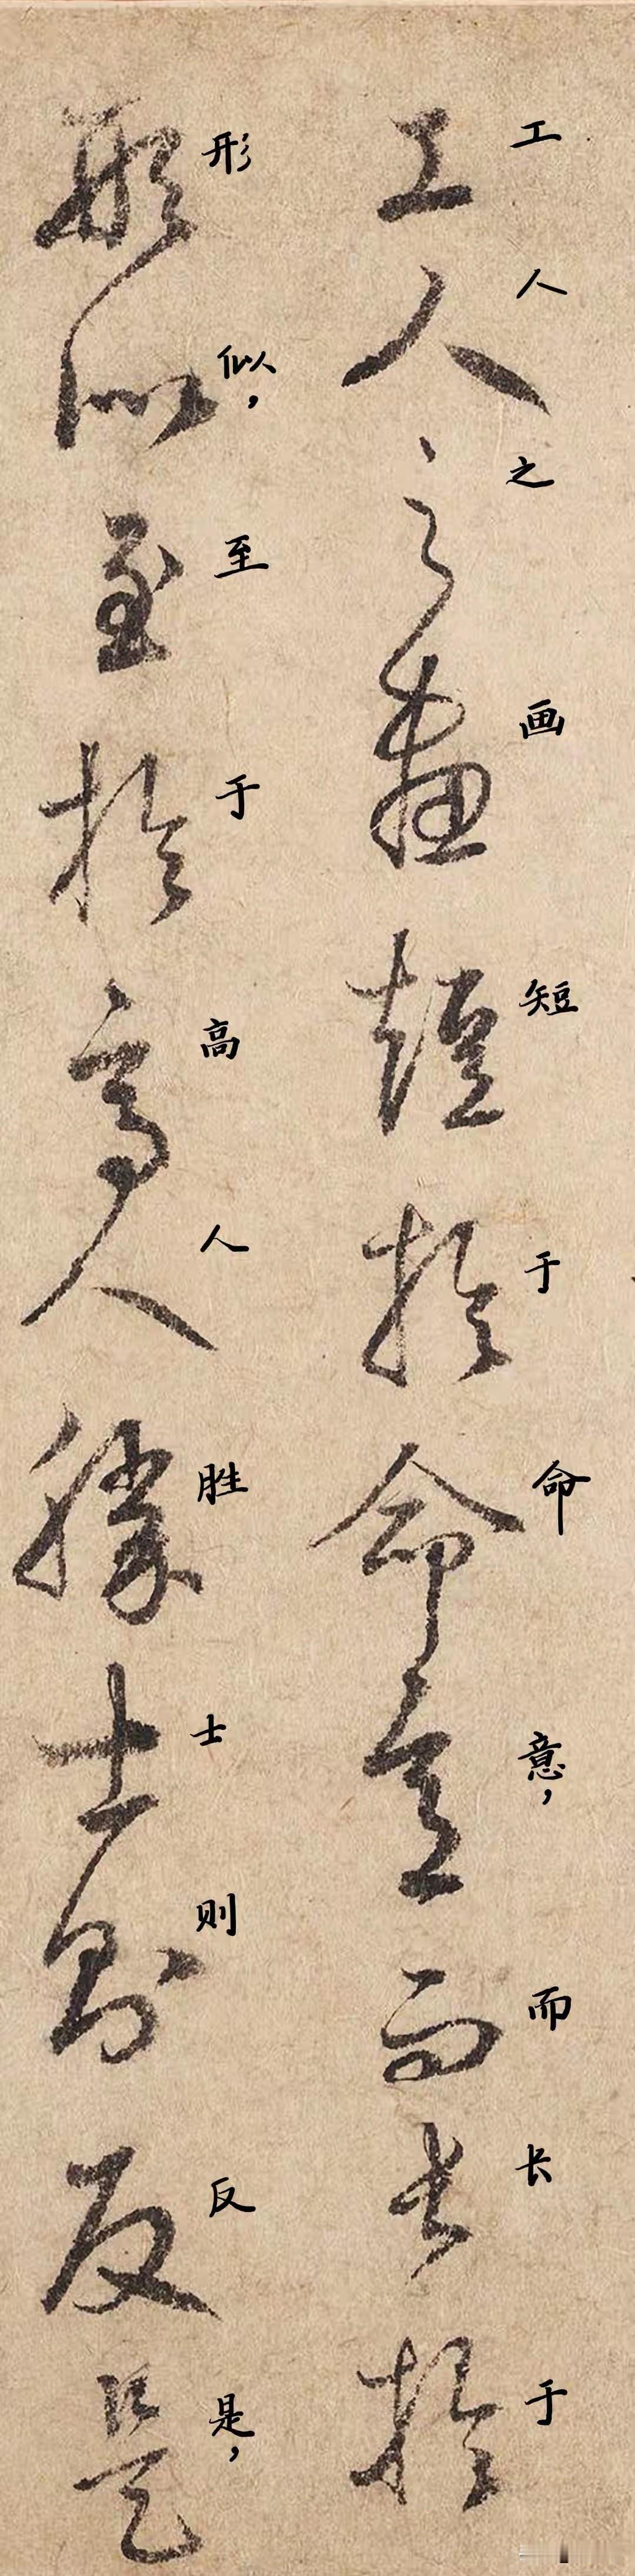 工人之畫短於命意而長於
工人之画短于命意，而长于
形似至於高人勝士則反是
形似，至于高人胜士则反是，